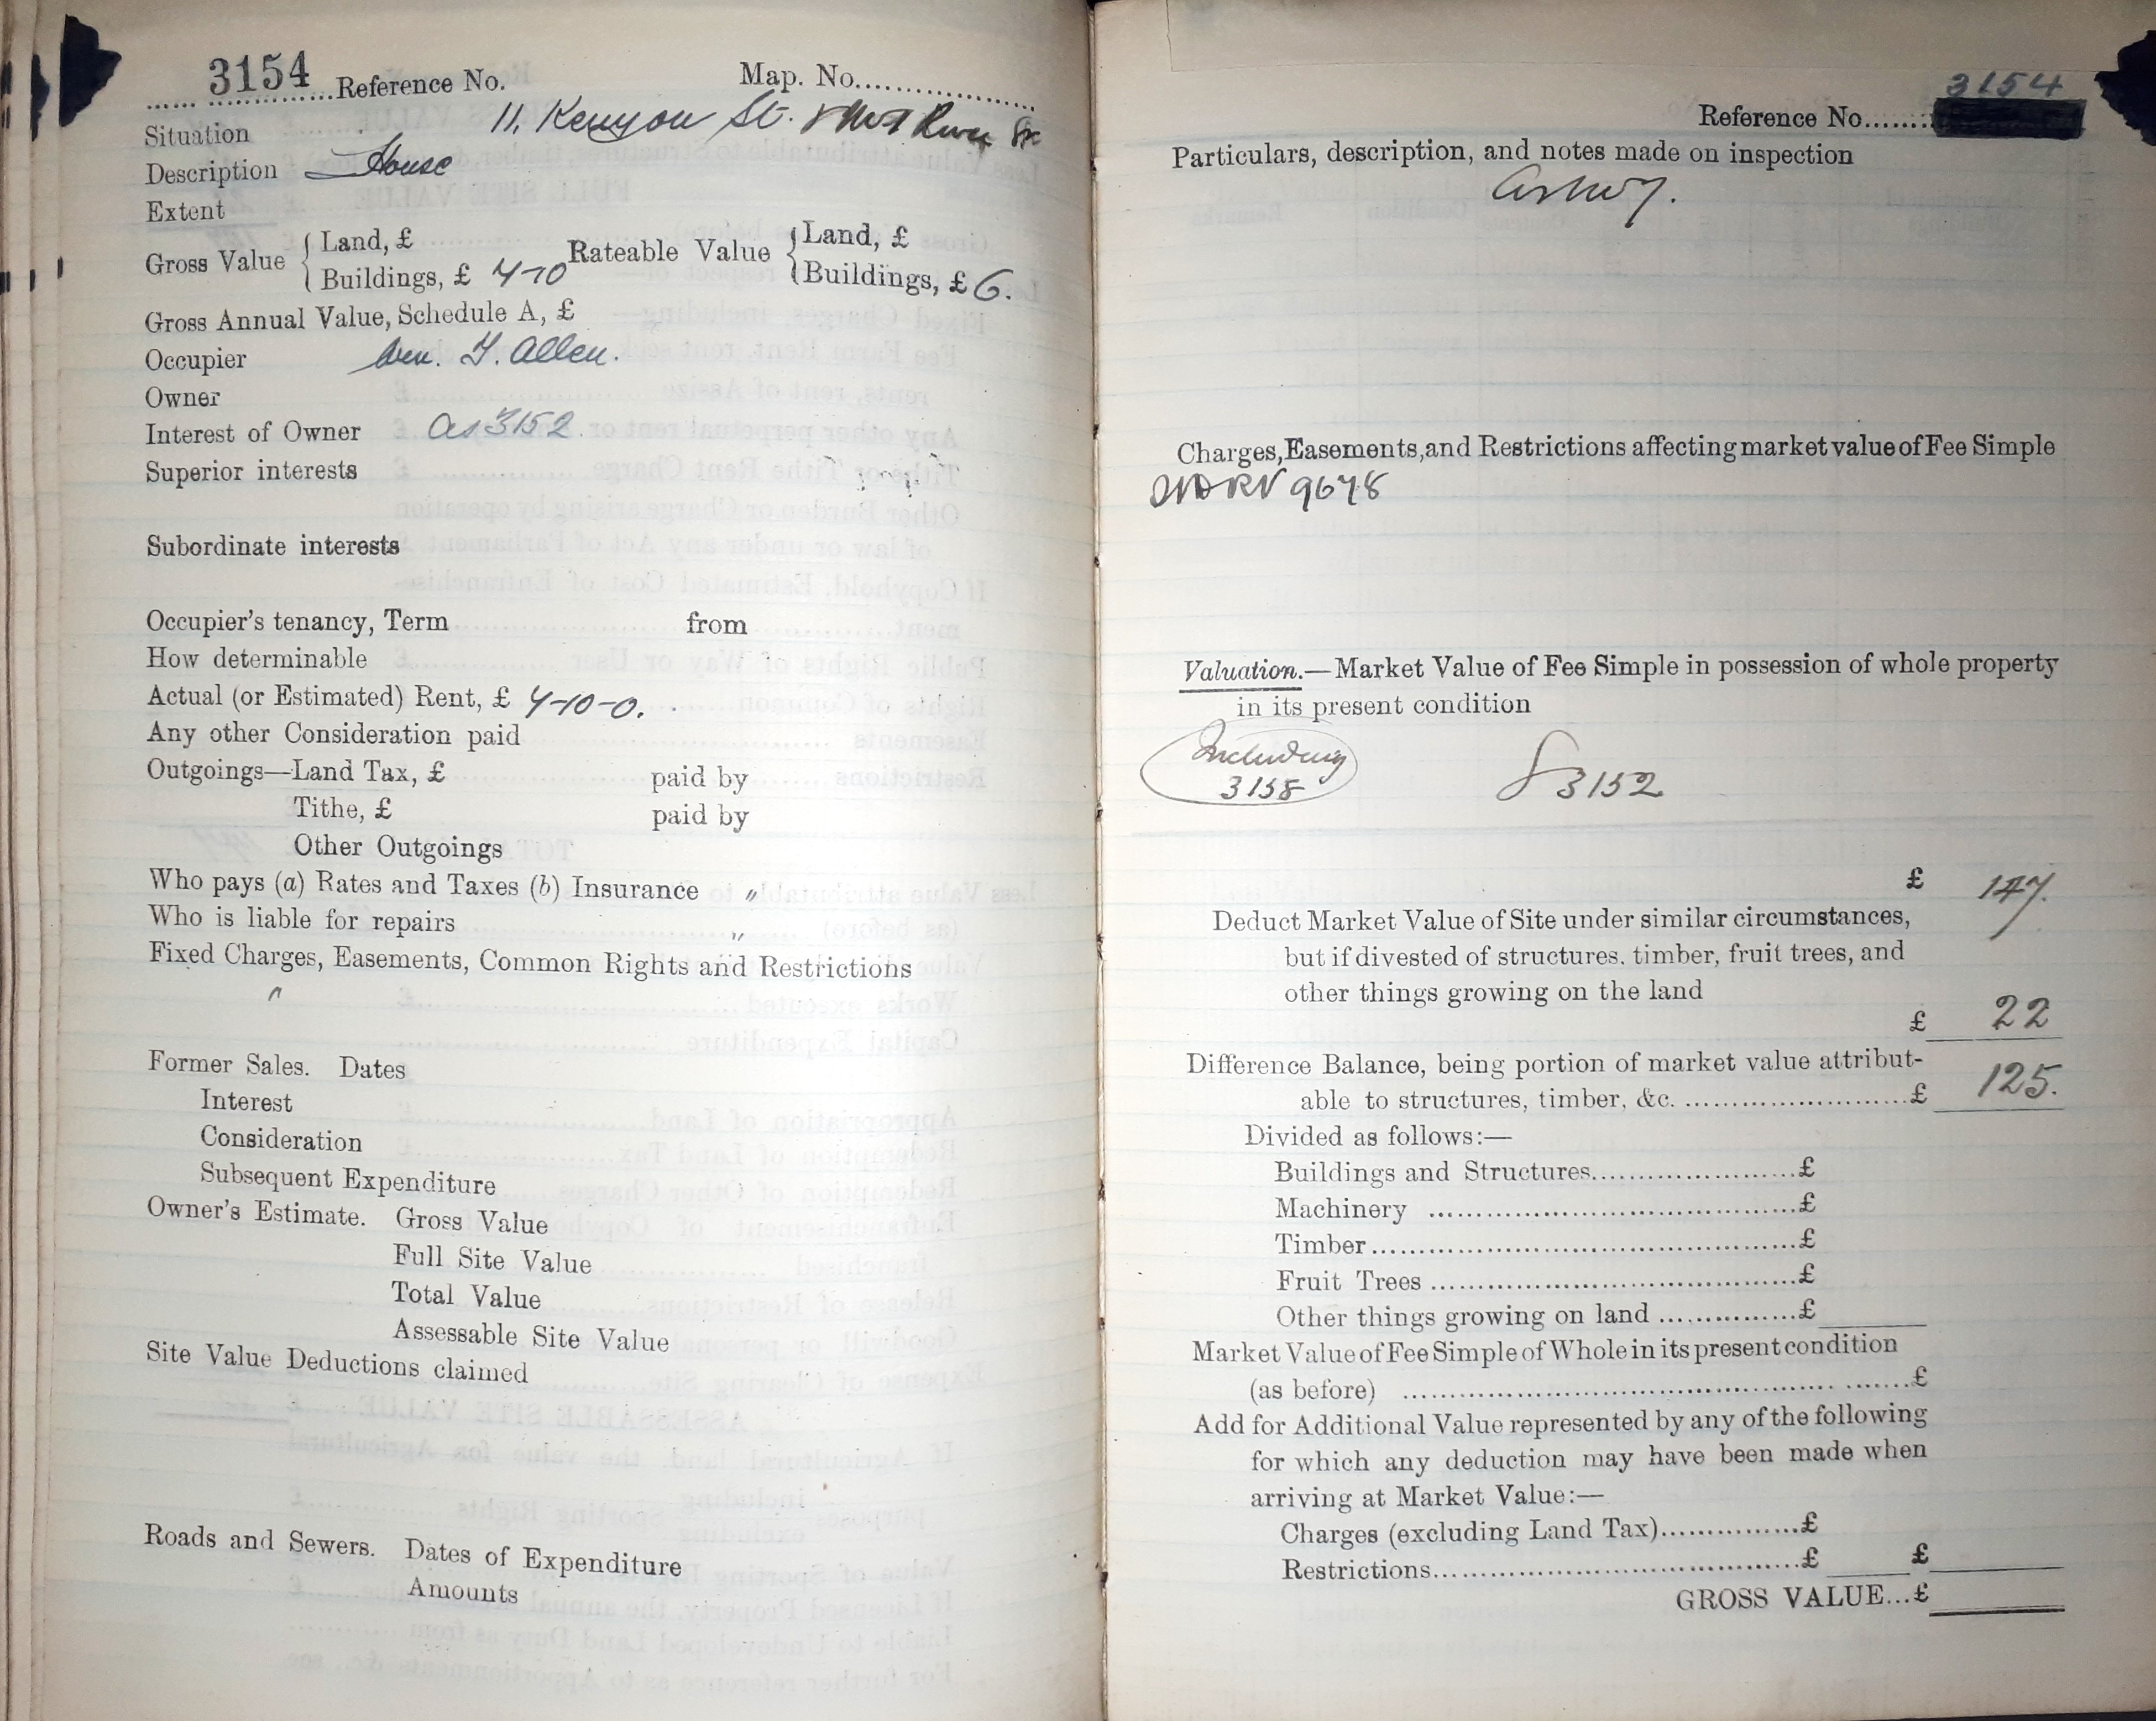 3154 Reference No. Map. No.
Situation 11, Kenyon St.
Description House
Extent
Gross Value { Land, £ Rateable Value { Land, £
Buildings, £ 4-10 Buildings, £ 6.
Gross Annual Value, Schedule A, £
Occupier J. Allen.
Owner
Interest of Owner as 3152
Superior interests
Subordinate interests
Occupier's tenancy, Term from
How determinable
Actual (or Estimated) Rent, £ 4-10-0.
Any other Consideration paid
Outgoings—Land Tax, £ paid by
Tithe, £ paid by
Other Outgoings
Who pays (a) Rates and Taxes (b) Insurance "
Who is liable for repairs "
Fixed Charges, Easements, Common Rights and Restrictions
Former Sales. Dates
Interest
Consideration
Subsequent Expenditure
Owner's Estimate. Gross Value
Full Site Value
Total Value
Assessable Site Value
Site Value Deductions claimed
Roads and Sewers. Dates of Expenditure
Amounts
3154
Reference No.
Particulars, description, and notes made on inspection
Charges, Easements, and Restrictions affecting market value of Fee Simple
9678
Valuation.—Market Value of Fee Simple in possession of whole property
in its present condition
Including
3158 3152
£ 147.
Deduct Market Value of Site under similar circumstances,
but if divested of structures. timber, fruit trees, and
other things growing on the land
£ 22
Difference Balance, being portion of market value attribut-
able to structures, timber, &c. £ 125.
Divided as follows:—
Buildings and Structures £
Machinery £
Timber £
Fruit Trees £
Other things growing on land £
Market Value of Fee Simple of Whole in its present condition
(as before) £
Add for Additional Value represented by any of the following
for which any deduction may have been made when
arriving at Market Value:—
Charges (excluding Land Tax) £
Restrictions £ £
GROSS VALUE...£